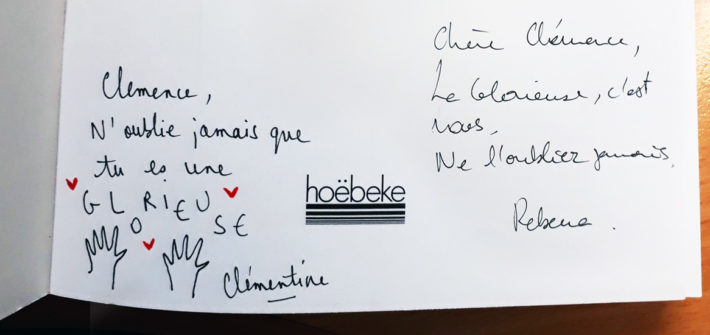 Clemence,
N'oublie jamais que
tu es une
GLORIEUSE
Clémentine
hoëbeke
Chère Clémence,
La Glorieuse, c'est
vous.
Ne l'oubliez jamais.